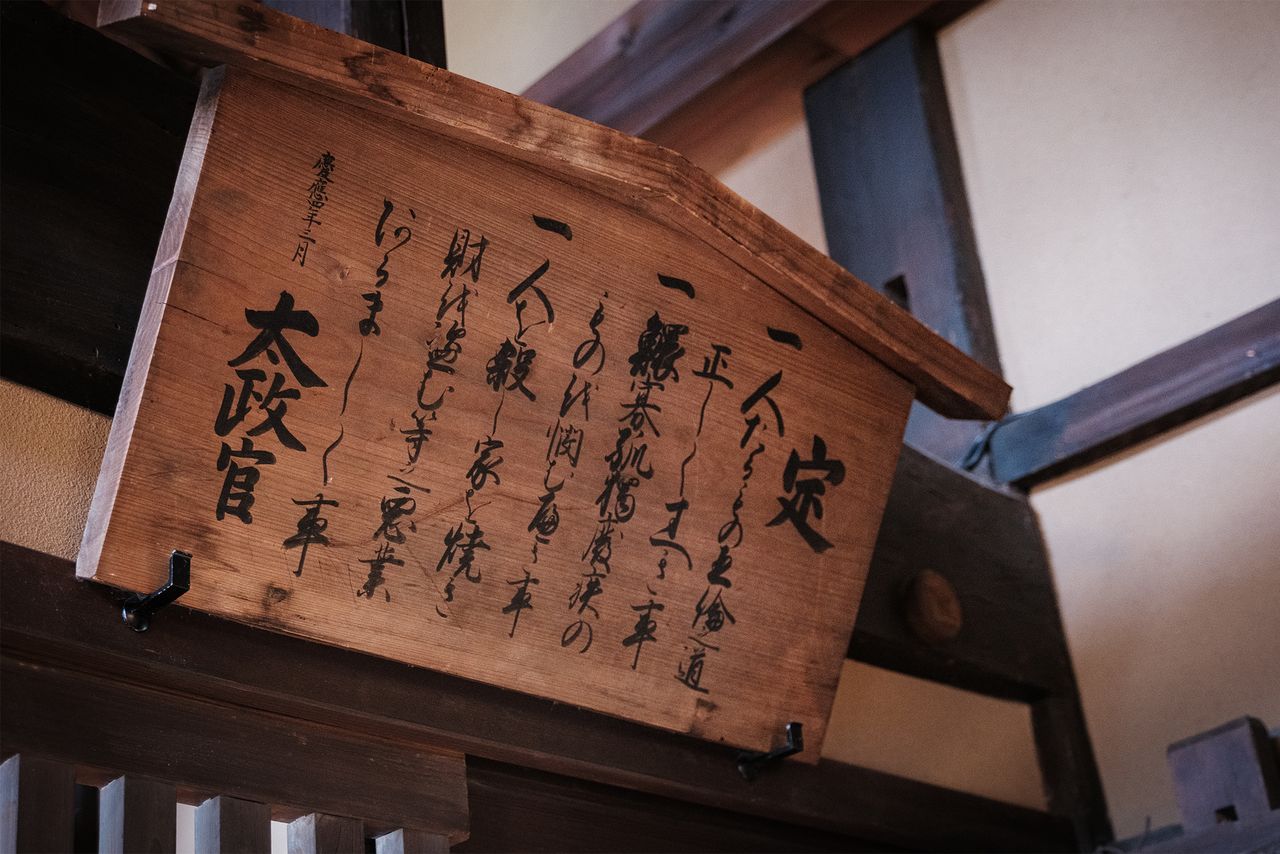 定
一人たるもの五倫之道
正しくすへき事
一鰥寡孤獨癈疾の
ものを憫むへき事
一人を殺し家を焼き
財を盗む等之悪業
あるましく事
慶應四年三月
太政官